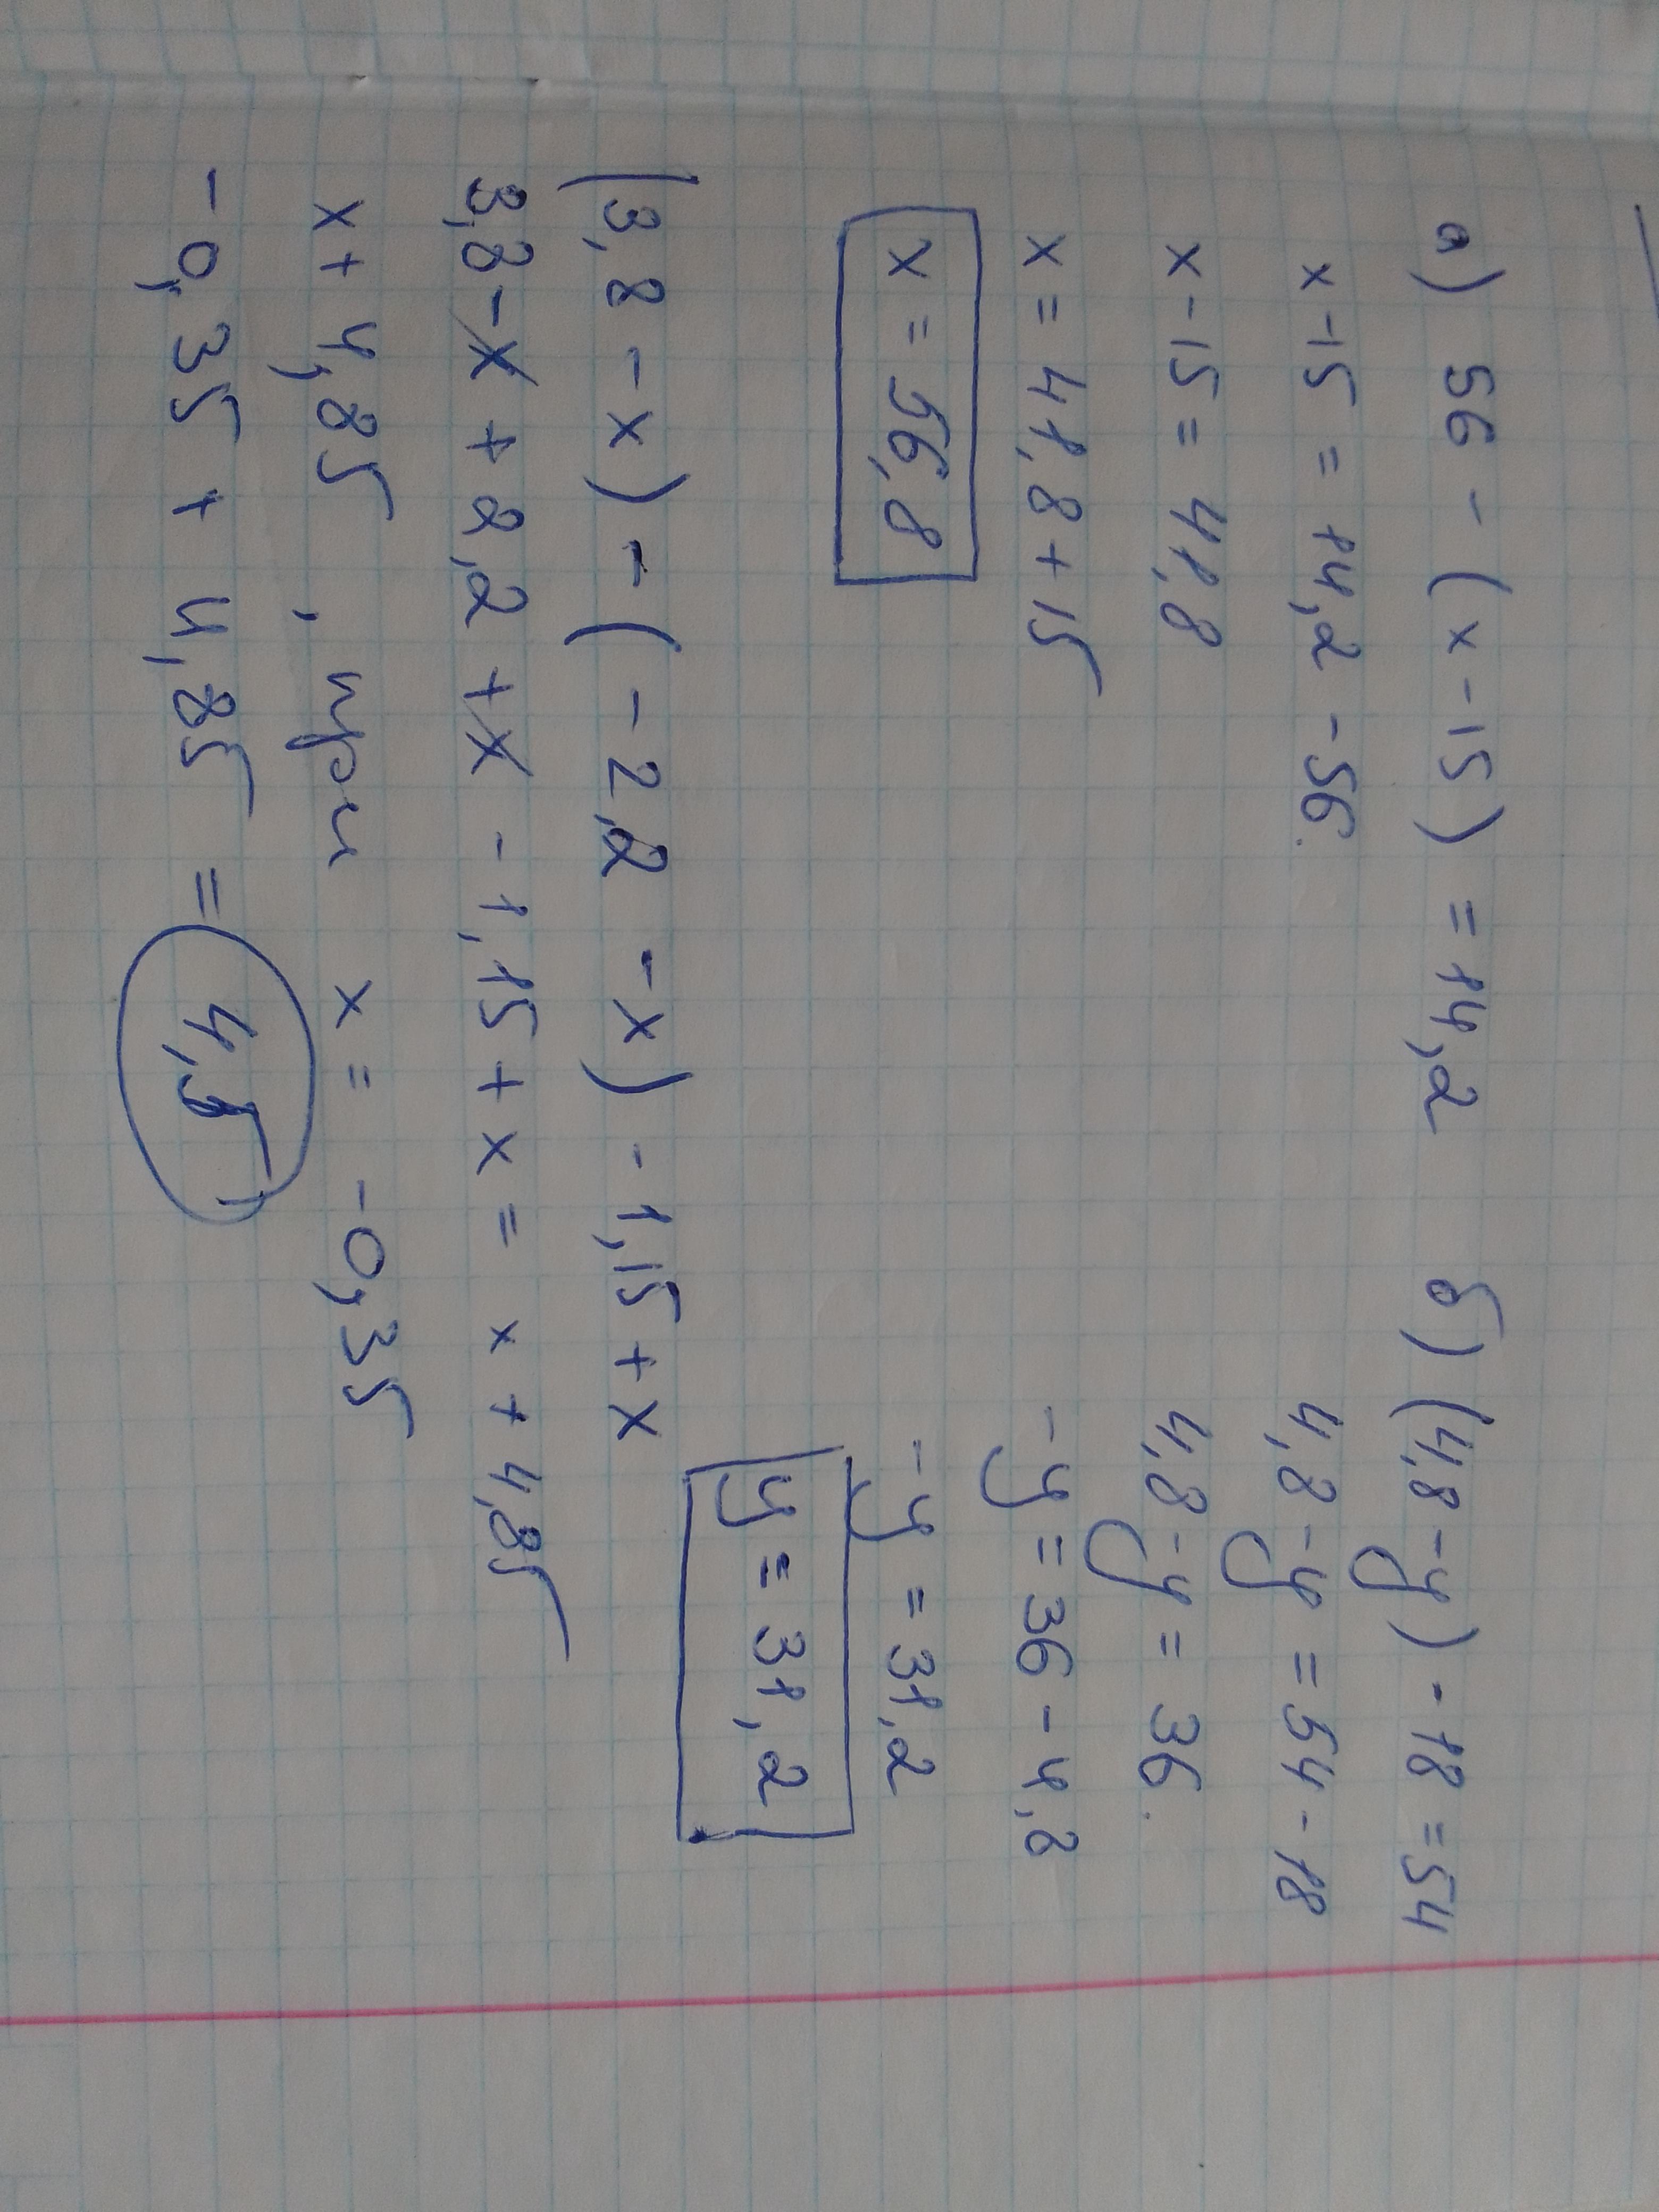 а) 56 - (x-15) = 14,2
x-15 = 14,2 -56.
x-15 = 41,8
x = 41,8 + 15
x = 56,8
б) (4,8-y) - 18 = 54
4,8-y = 54-18
4,8-y = 36.
-y = 36-4,8
-y = 31,2
y = 31,2
(3,8 - x) - (-2,2 -x) - 1,15 + x
3,8-x + 2,2 +x - 1,15 + x = x + 4,85
x + 4,85, при x = -0,35
-0,35 + 4,85 = 4,5